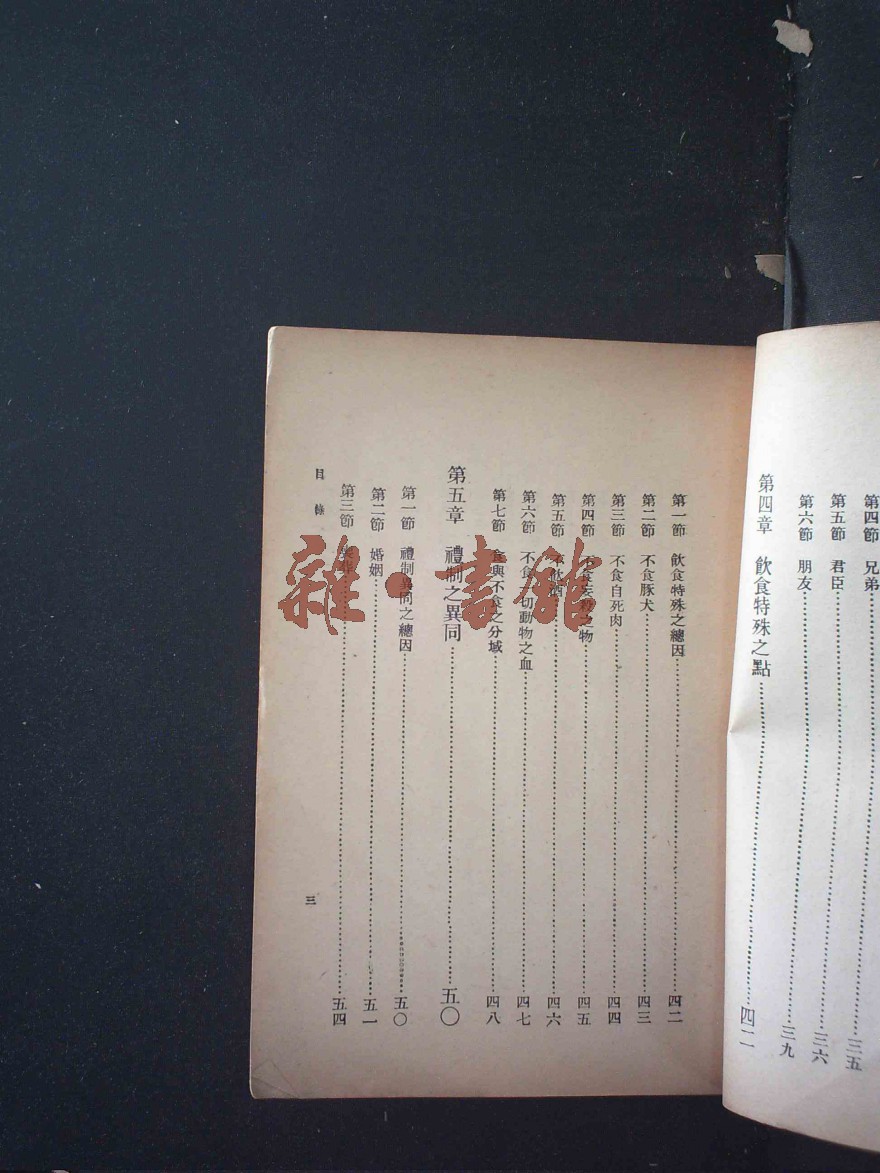 第四節 兄弟 三五
第五節 君臣 三六
第六節 朋友 三九
第四章 飲食特殊之點 四二
第一節 飲食特殊之總因 四二
第二節 不食豚犬 四三
第三節 不食自死肉 四四
第四節 不食妄殺之物 四五
第五節 四六
第六節 不食一切動物之血 四七
第七節 食與不食之分域 四八
第五章 禮制之異同 五〇
第一節 禮制異同之總因 五〇
第二節 婚姻 五一
第三節 五四
目錄
三
雜·書館